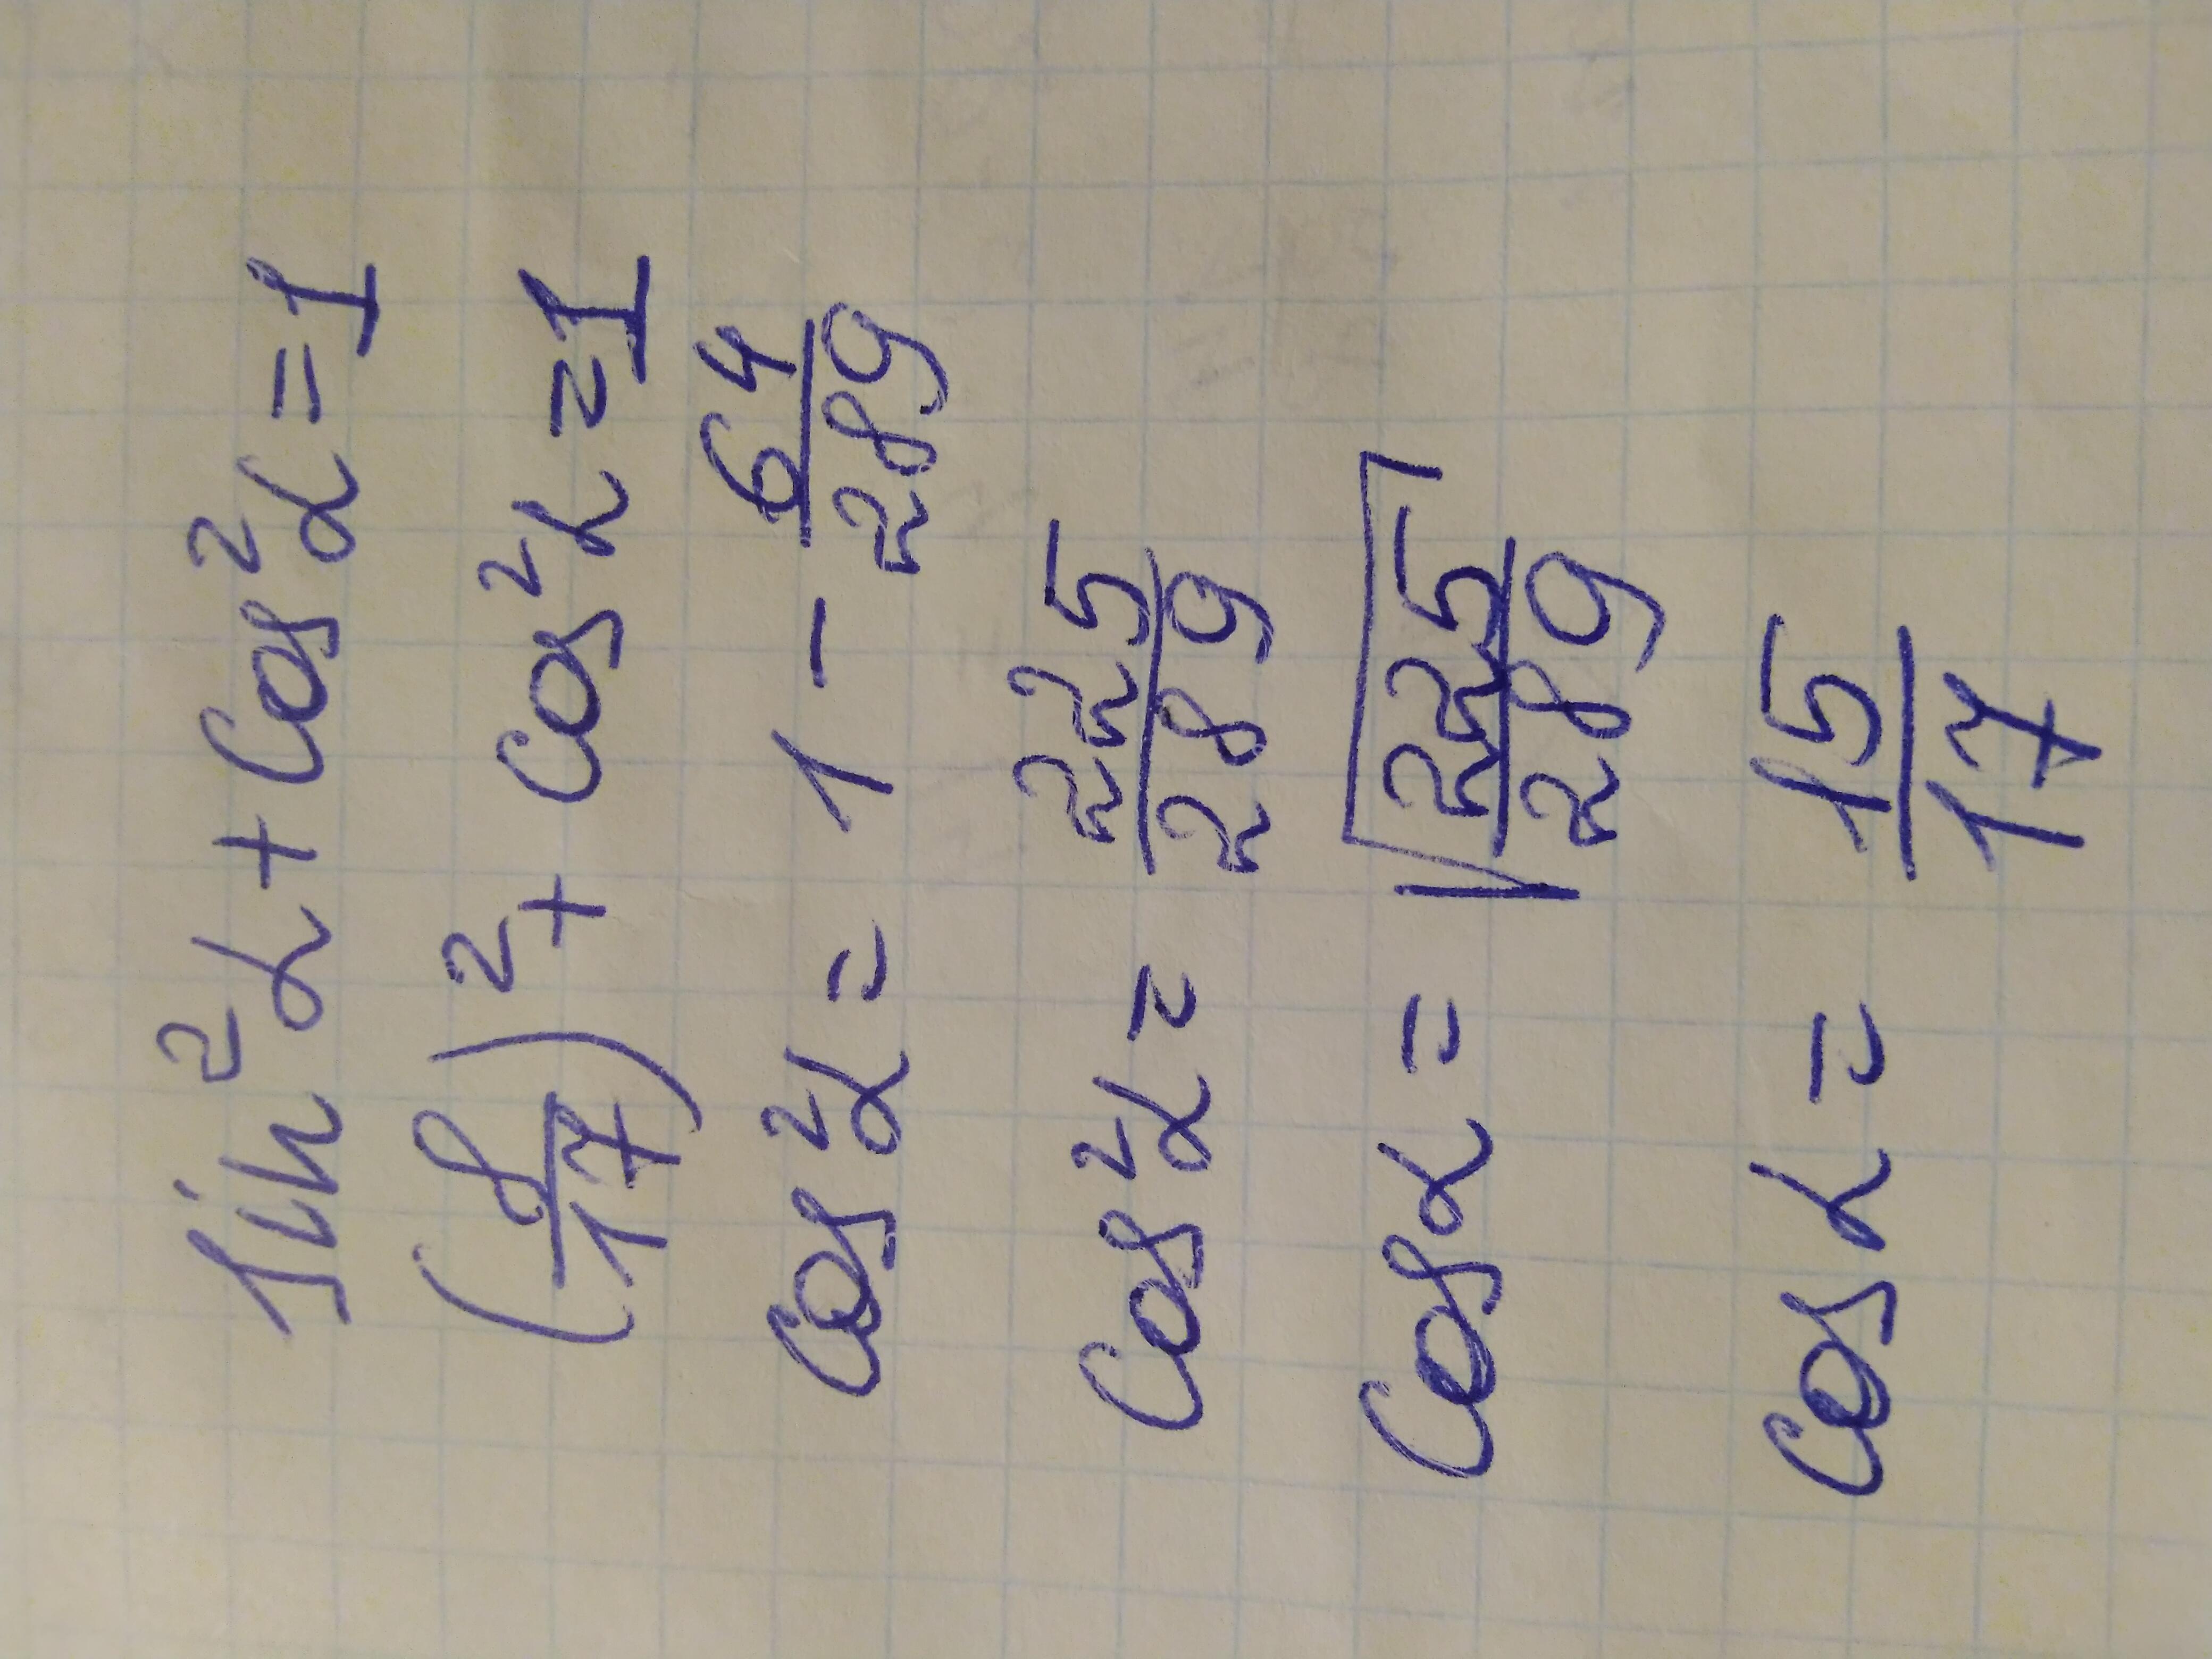 sin²α + cos²α = 1
(8/17)² + cos²α = 1
cos²α = 1 - 64/289
cos²α = 225/289
cos α = √(225/289)
cos α = 15/17